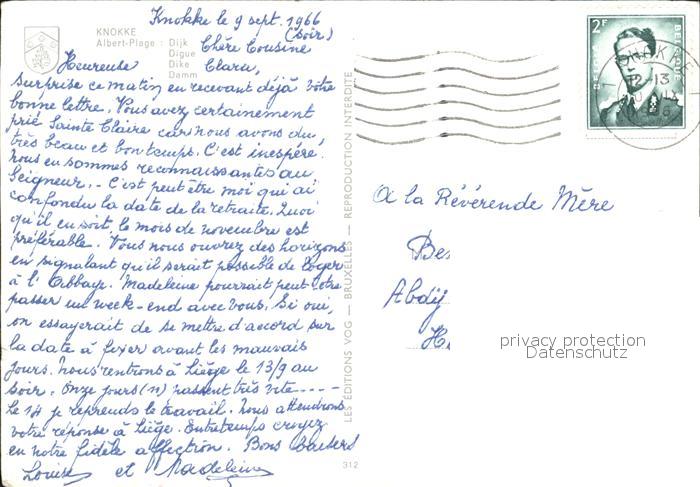 Knokke le 9 sept. 1966
(soir)
KNOKKE
Albert-Plage : Dijk
Digue
Dike
Damm
Chère Cousine
Clara,
Heureuse
surprise ce matin en recevant déjà votre
bonne lettre. Vous avez certainement
prié Sainte Claire car nous avons du
très beau et bon temps. C'est inespéré.
Nous en sommes reconnaissantes au
Seigneur. - C'est peut être moi qui ai
confondu la date de la retraite. Quoi
qu'il en soit, le mois de novembre est
préférable. Vous nous ouvrez des horizons
en signalant qu'il serait possible de loger
à l'Abbaye. Madeleine pourrait peut-être
passer un week-end avec vous. Si oui,
on essayerait de se mettre d'accord sur
la date à fixer avant les mauvais
jours. Nous rentrons à Liège le 13/9 au
soir. Onze jours (n) passent très vite ----
le 14 je reprends le travail. Nous attendrons
votre réponse à Liège. Entretemps croyez
en notre fidèle affection. Bons baisers
Louise et Madeleine
LES ÉDITIONS VOG — BRUXELLES — REPRODUCTION INTERDITE
312
2F
BELGIE BELGIQUE
KNOKKE
12-13
A la Révérende Mère
Be
Abdij
H
privacy protection
Datenschutz